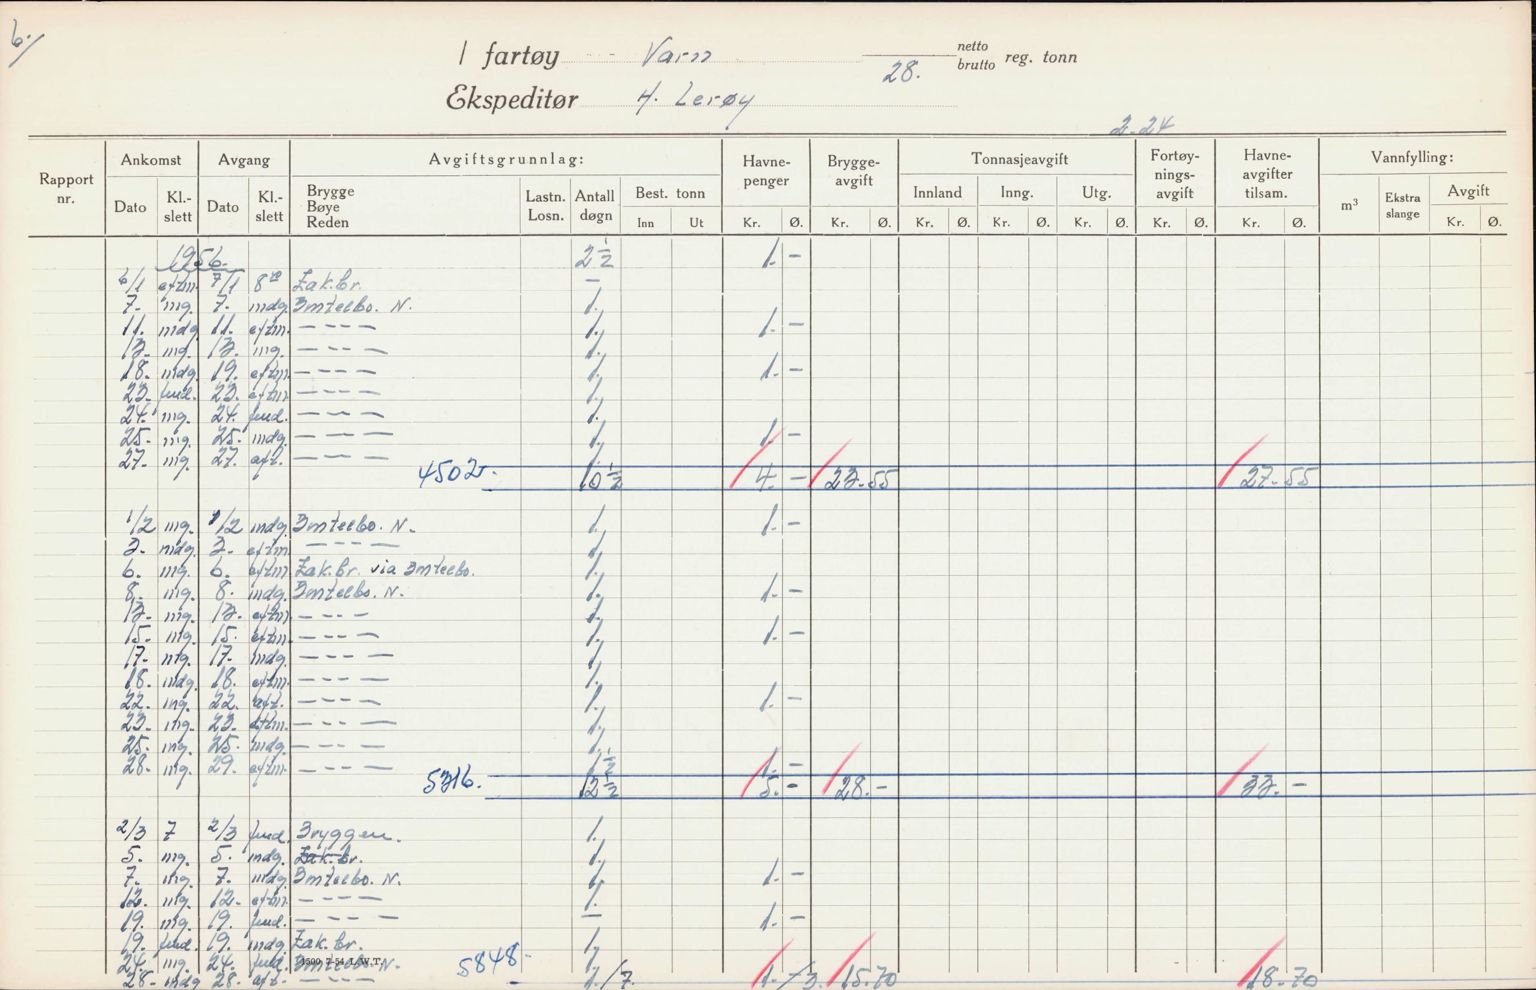 6./
1 fartøy Varn 28. netto brutto reg. tonn
Ekspeditør H. Lerøy
2-24
Rapport nr. Ankomst Avgang Avgiftsgrunnlag: Havne-penger Brygge-avgift Tonnasjeavgift Fortøy-nings-avgift Havne-avgifter tilsam. Vannfylling:
Dato Kl.-slett Dato Kl.-slett Brygge Bøye Reden Lastn. Losn. Antall døgn Best. tonn Innland Inng. Utg. m³ Ekstra slange Avgift
Inn Ut Kr. Ø. Kr. Ø. Kr. Ø. Kr. Ø. Kr. Ø. Kr. Ø. Kr. Ø. Kr. Ø.
1956. 2 1/2 1. -
6/1 eftm. 7/1 8 Zak.br. —
7. mg. 7. mdg. N. 1.
11. mdg. 11. eftm. — -- — 1. 1. -
13. mg. 13. mg. — -- — 1.
18. mdg. 19. eftm. — -- — 1. 1. -
23. fmd. 23. eftm. — -- — 1.
24. mg. 24. fmd. — -- — 1.
25. mg. 25. mdg. — — — 1. 1. -
27. mg. 27. aft. — -- — 1.
4502 10 1/2 4. - 23.55 27.55
1/2 mg. 1/2 mdg. N. 1. 1. -
3. mdg. 3. eftm. — -- — 1.
6. mg. 6. eftm. Zak.br. via 1.
8. mg. 8. mdg. N. 1. 1. -
13. mg. 13. eftm. — -- — 1.
15. mg. 15. eftm. — -- — 1. 1. -
17. mg. 17. mdg. — -- — 1.
18. mdg. 18. eftm. — -- — 1.
22. mg. 22. aft. — -- — 1. 1. -
23. mg. 23. eftm. — -- — 1.
25. mg. 25. mdg. — -- — 1.
28. mg. 29. eftm. — -- — 1 1/2 1. -
5316. 12 1/2 5. - 28. - 33. -
2/3 7 2/3 fmd. Bryggen. 1.
5. mg. 5. mdg. Zak.br. 1.
7. mg. 7. mdg. N. 1. 1. -
12. mg. 12. eftm. — -- — 1.
19. mg. 19. fmd. — -- — — 1. -
19. fmd. 19. mdg. Zak.br. 1.
24. mg. 24. fmd. N. 5848. 1.
28. mdg 28. aft. — -- — 1./7. 1. -/3. 15.70 18.70